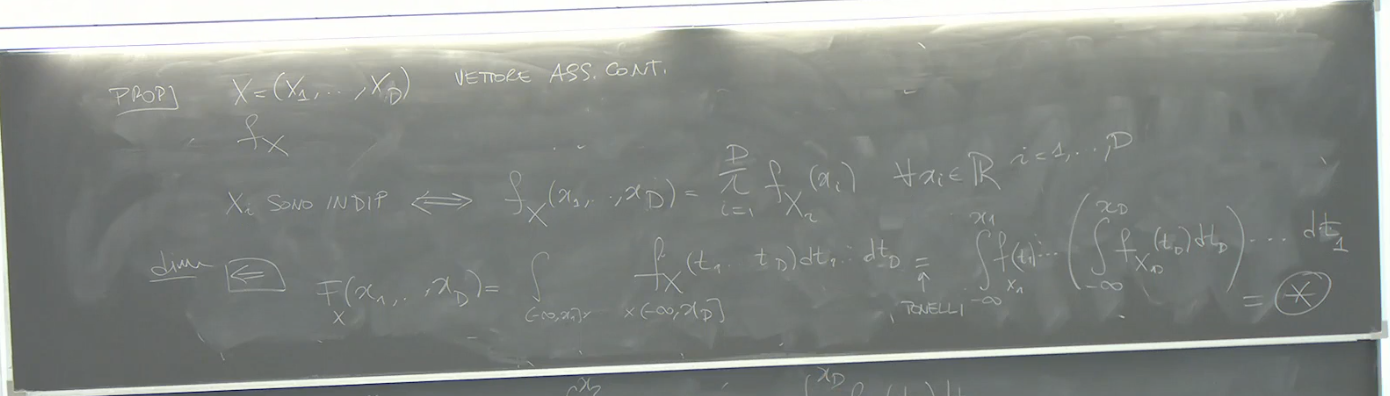 PROP] X=(X_1,..,X_D) VETTORE ASS. CONT.
f_X
X_i SONO INDIP ⟺ f_X(x_1,..,x_D) = ∏_{i=1}^{D} f_{X_i}(x_i) ∀x_i∈ℝ i=1,..,D
dim [⇐] F_X(x_1,..,x_D) = ∫_{(-∞,x_1]×   ×(-∞,x_D]} f_X(t_1.. t_D)dt_1..dt_D = ∫_{-∞}^{x_1} f_{X_1}(t_1)... (∫_{-∞}^{x_D} f_{X_D}(t_D)dt_D)... dt_1
↑ TONELLI = ⊛